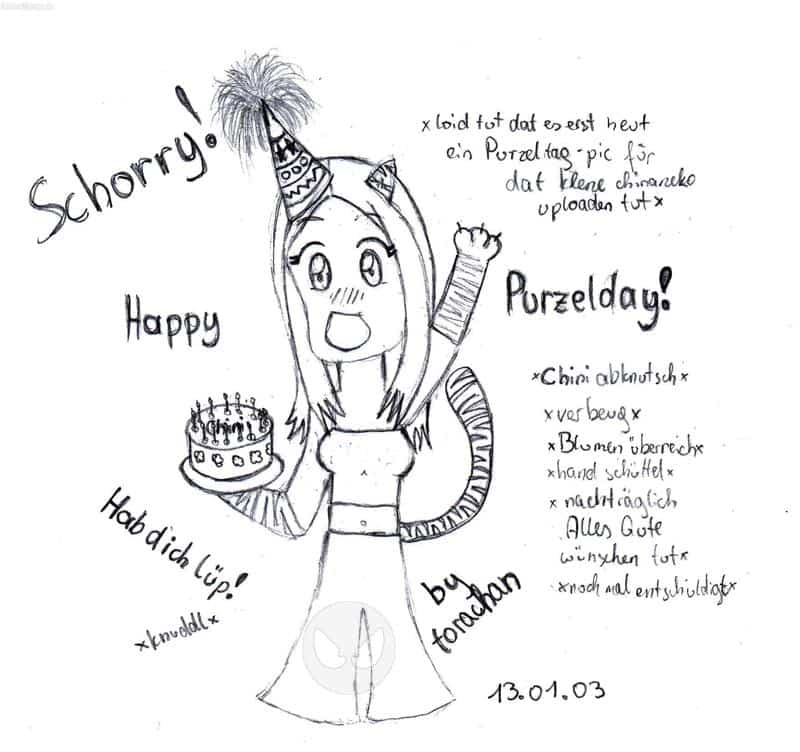 Schorry!
xloid tut dat es erst heut
ein Purzeltag-pic für
dat klene chinaneko
uploaden tutx
Happy
Purzelday!
Chini
xChini abknutschx
xverbeugx
xBlumen überreichx
xhand schüttelx
xnachträglich
Alles Gute
wünschen tutx
xnoch mal entschuldigtx
Hab dich lüp!
xknuddlx
by
torachan
13.01.03